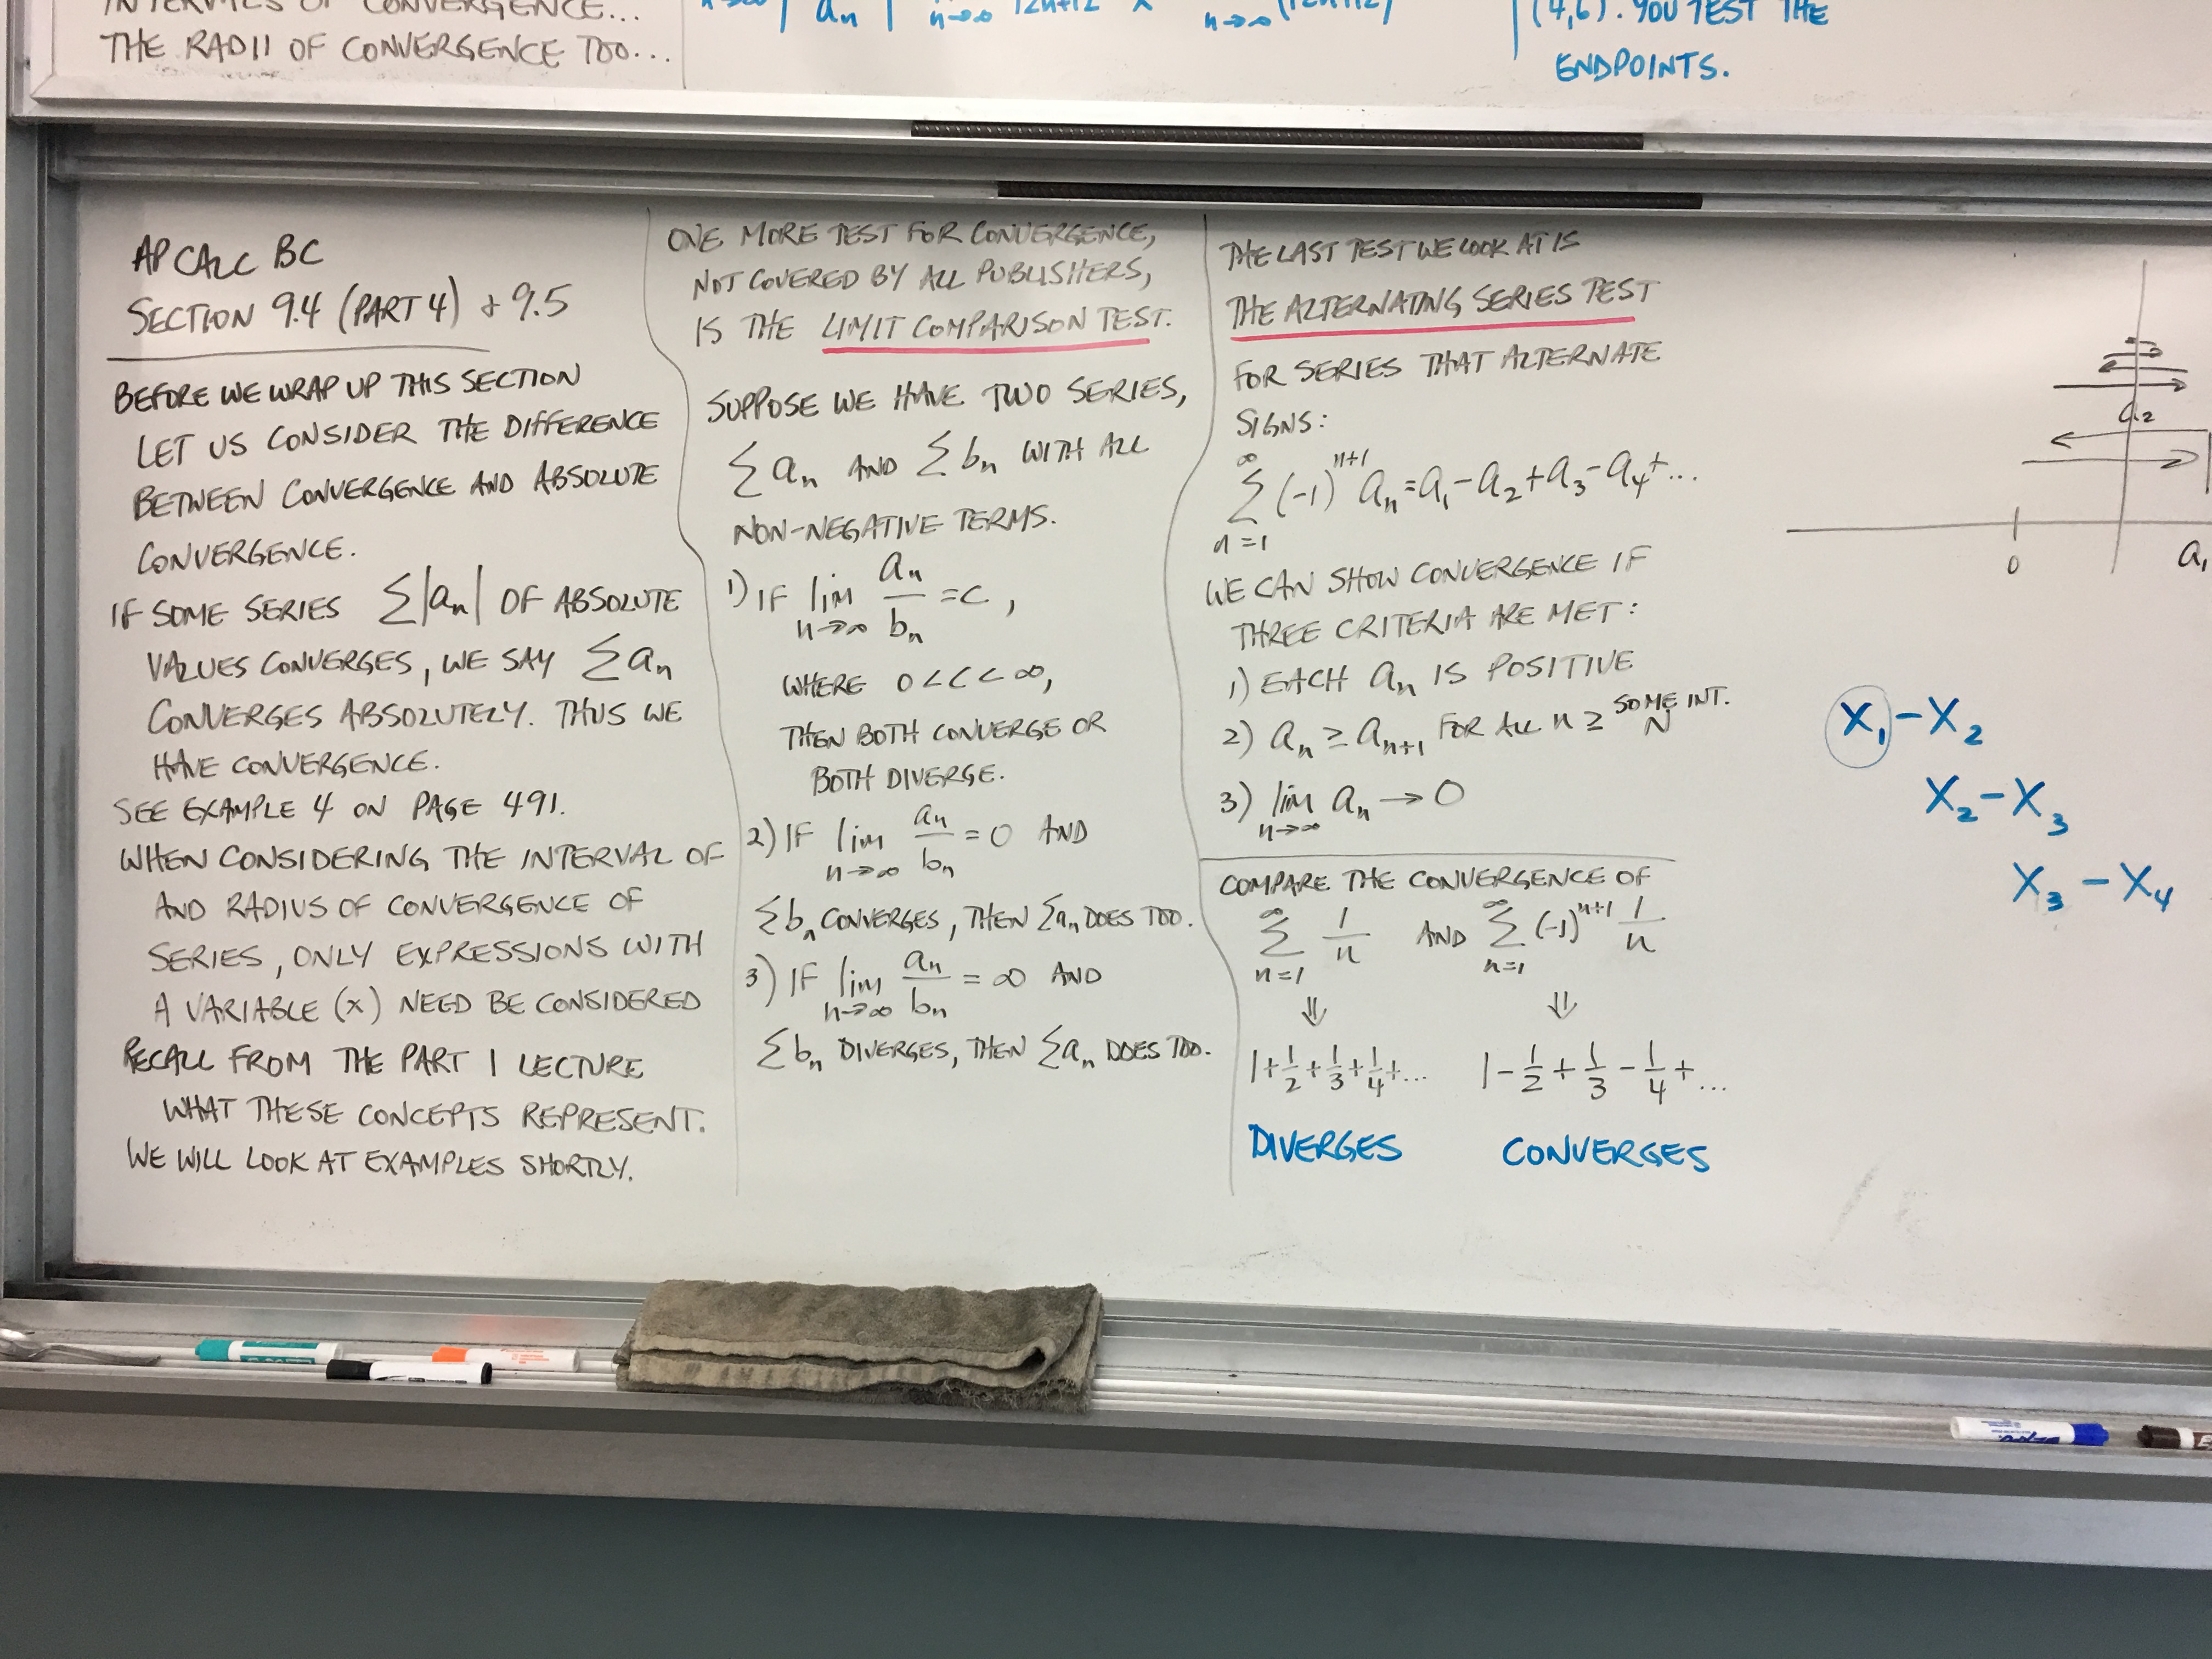 INTERVALS OF CONVERGENCE...
THE RADII OF CONVERGENCE TOO...
(4,6). YOU TEST THE
ENDPOINTS.
AP CALC BC
SECTION 9.4 (PART 4) + 9.5
BEFORE WE WRAP UP THIS SECTION
LET US CONSIDER THE DIFFERENCE
BETWEEN CONVERGENCE AND ABSOLUTE
CONVERGENCE.
IF SOME SERIES Σ|aₙ| OF ABSOLUTE
VALUES CONVERGES, WE SAY Σaₙ
CONVERGES ABSOLUTELY. THUS WE
HAVE CONVERGENCE.
SEE EXAMPLE 4 ON PAGE 491.
WHEN CONSIDERING THE INTERVAL OF
AND RADIUS OF CONVERGENCE OF
SERIES, ONLY EXPRESSIONS WITH
A VARIABLE (x) NEED BE CONSIDERED
RECALL FROM THE PART 1 LECTURE
WHAT THESE CONCEPTS REPRESENT.
WE WILL LOOK AT EXAMPLES SHORTLY.
ONE MORE TEST FOR CONVERGENCE,
NOT COVERED BY ALL PUBLISHERS,
IS THE LIMIT COMPARISON TEST.
SUPPOSE WE HAVE TWO SERIES,
Σaₙ AND Σbₙ WITH ALL
NON-NEGATIVE TERMS.
1) IF lim n→∞ aₙ/bₙ = C,
WHERE 0 < C < ∞,
THEN BOTH CONVERGE OR
BOTH DIVERGE.
2) IF lim n→∞ aₙ/bₙ = 0 AND
Σbₙ CONVERGES, THEN Σaₙ DOES TOO.
3) IF lim n→∞ aₙ/bₙ = ∞ AND
Σbₙ DIVERGES, THEN Σaₙ DOES TOO.
THE LAST TEST WE LOOK AT IS
THE ALTERNATING SERIES TEST
FOR SERIES THAT ALTERNATE
SIGNS:
∞ Σ n=1 (-1)ⁿ⁺¹ aₙ = a₁ - a₂ + a₃ - a₄ + ...
WE CAN SHOW CONVERGENCE IF
THREE CRITERIA ARE MET:
1) EACH aₙ IS POSITIVE
2) aₙ ≥ aₙ₊₁ FOR ALL n ≥ SOME INT. N
3) lim n→∞ aₙ → 0
COMPARE THE CONVERGENCE OF
∞ Σ n=1 1/n AND ∞ Σ n=1 (-1)ⁿ⁺¹ 1/n
⇓ ⇓
1+1/2+1/3+1/4+... 1-1/2+1/3-1/4+...
DIVERGES CONVERGES
a₂
0 a₁
X₁-X₂
X₂-X₃
X₃-X₄